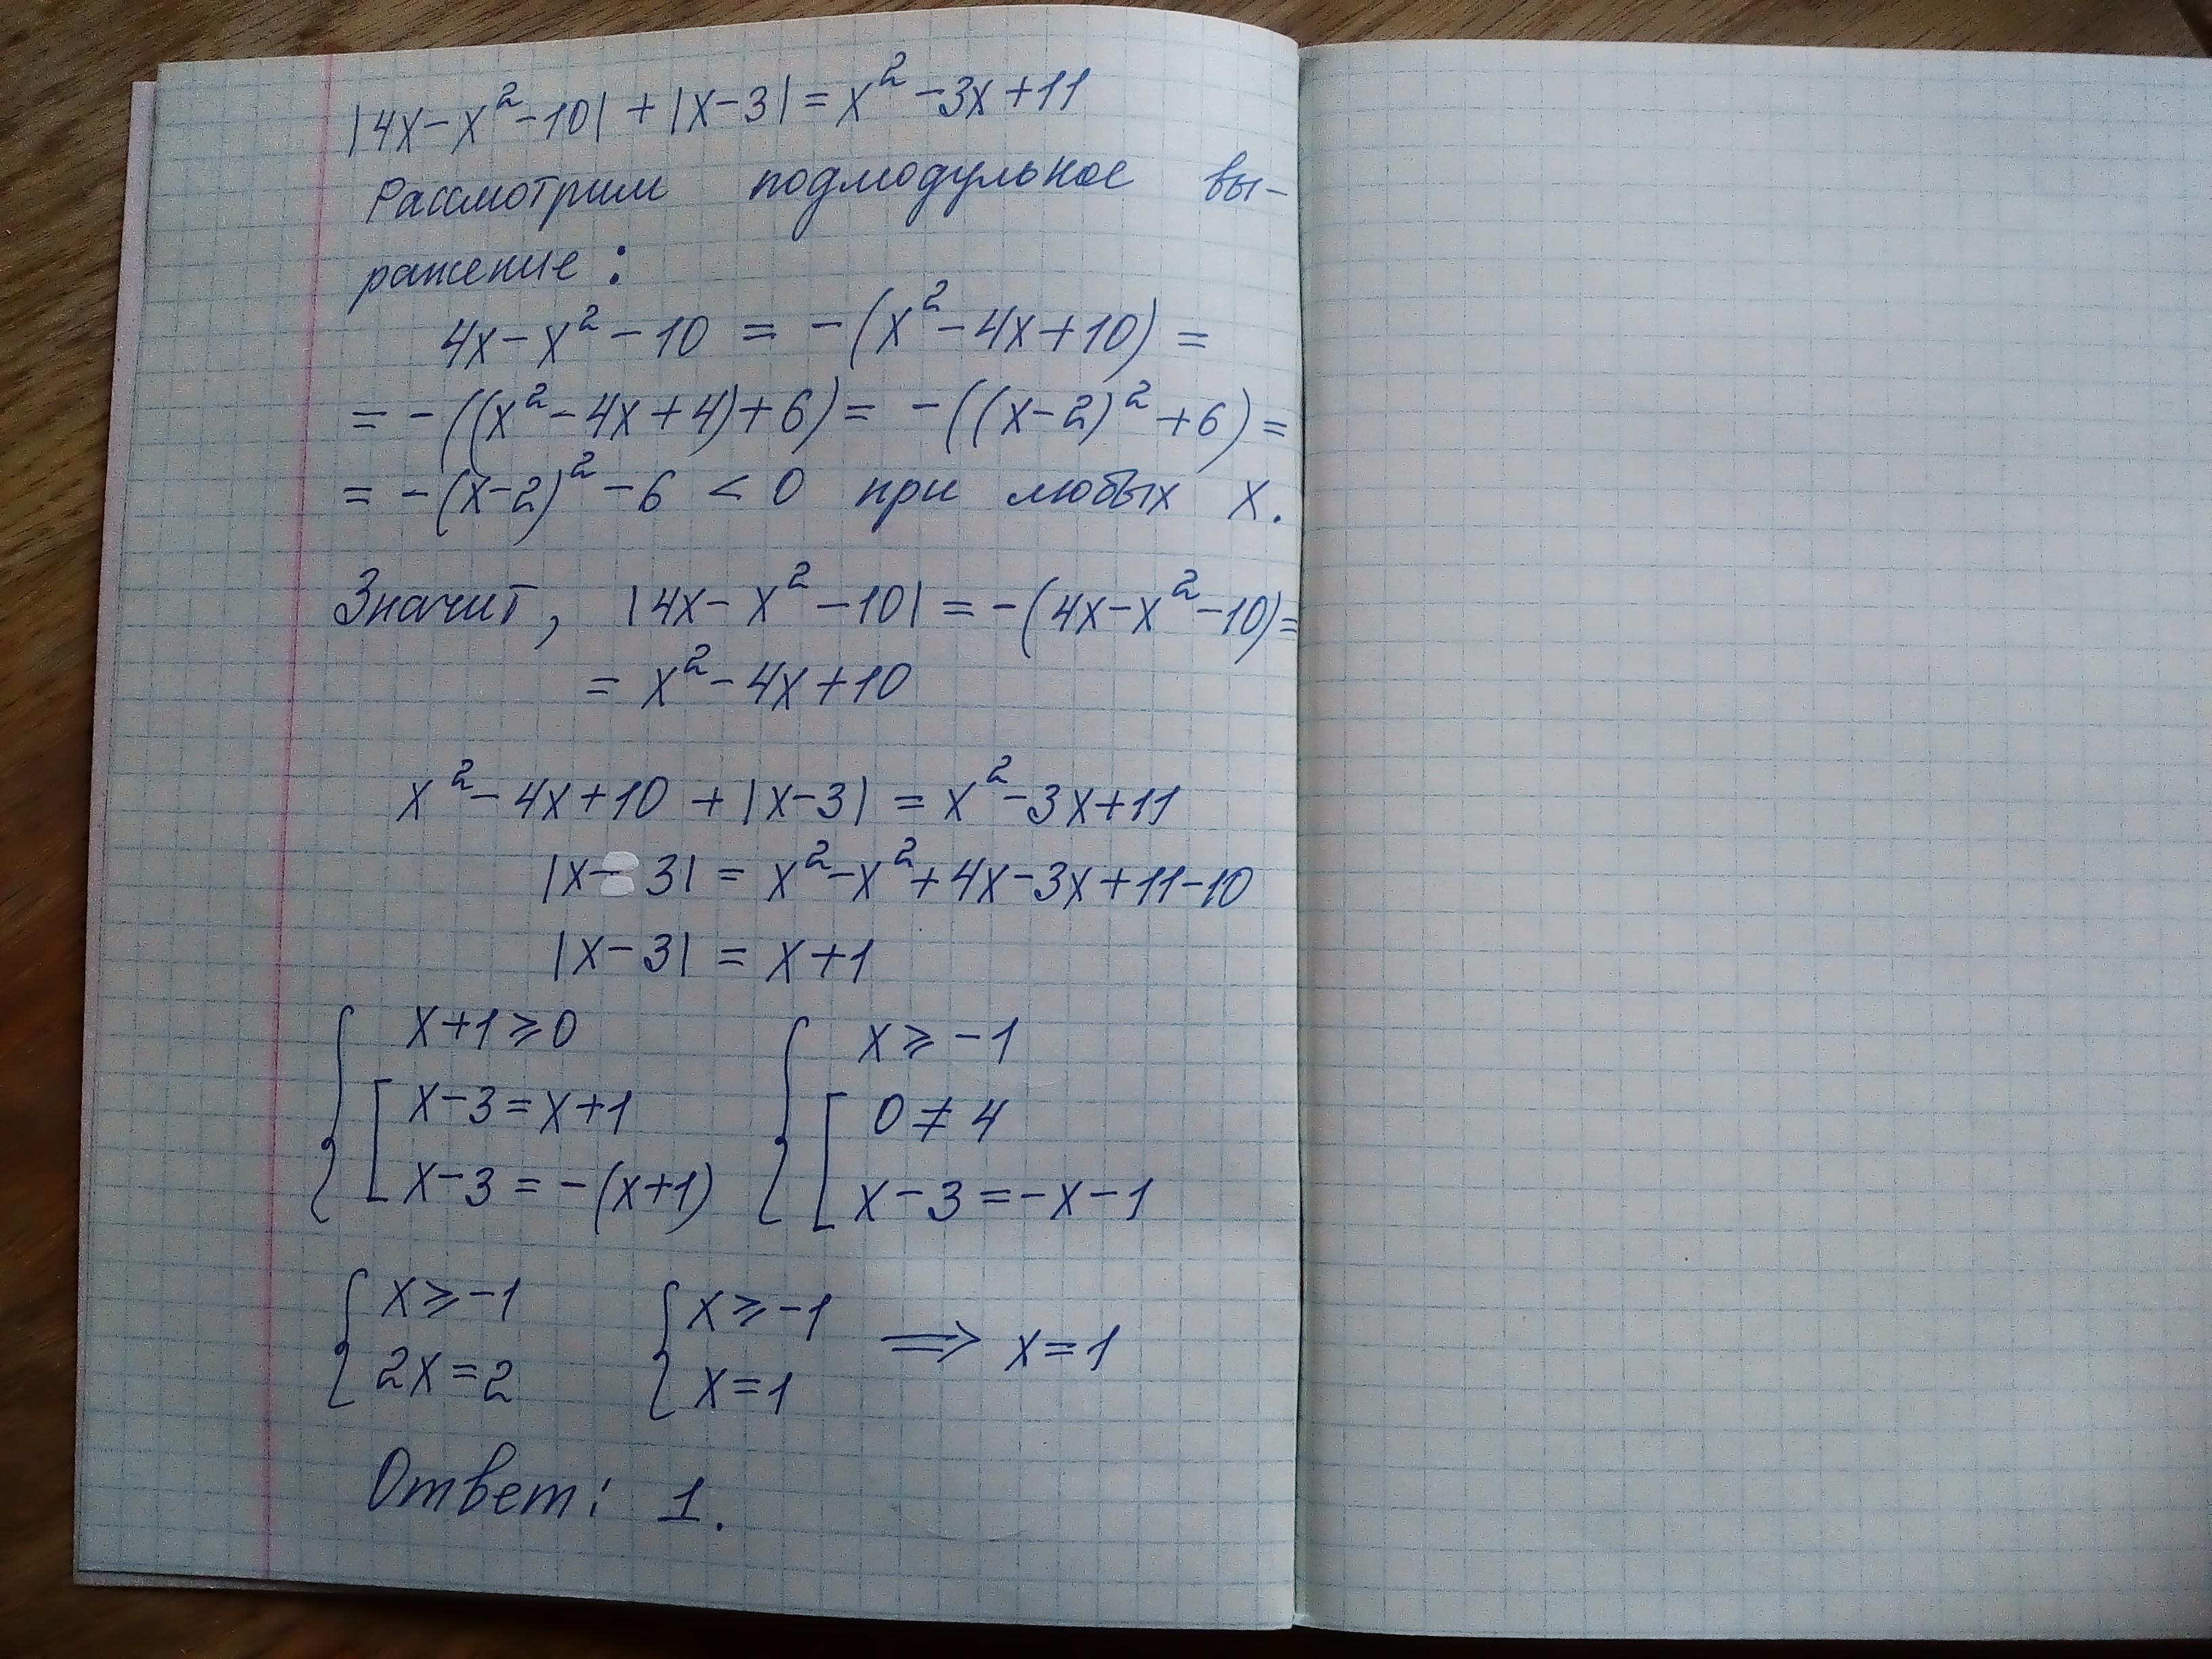 |4x-x²-10|+|x-3|=x²-3x+11
Рассмотрим подмодульное вы-
ражение:
4x-x²-10 = -(x²-4x+10)=
=-((x²-4x+4)+6)= -((x-2)²+6)=
=-(x-2)²-6 < 0 при любых x.
Значит, |4x-x²-10|=-(4x-x²-10)=
= x²-4x+10
x²-4x+10+|x-3|=x²-3x+11
|x-3|=x²-x²+4x-3x+11-10
|x-3|=x+1
{ x+1⩾0 { x⩾-1
[ x-3=x+1 [ 0≠4
x-3=-(x+1) x-3=-x-1
{ x⩾-1 { x⩾-1 ⟹ x=1
2x=2 x=1
Ответ: 1.